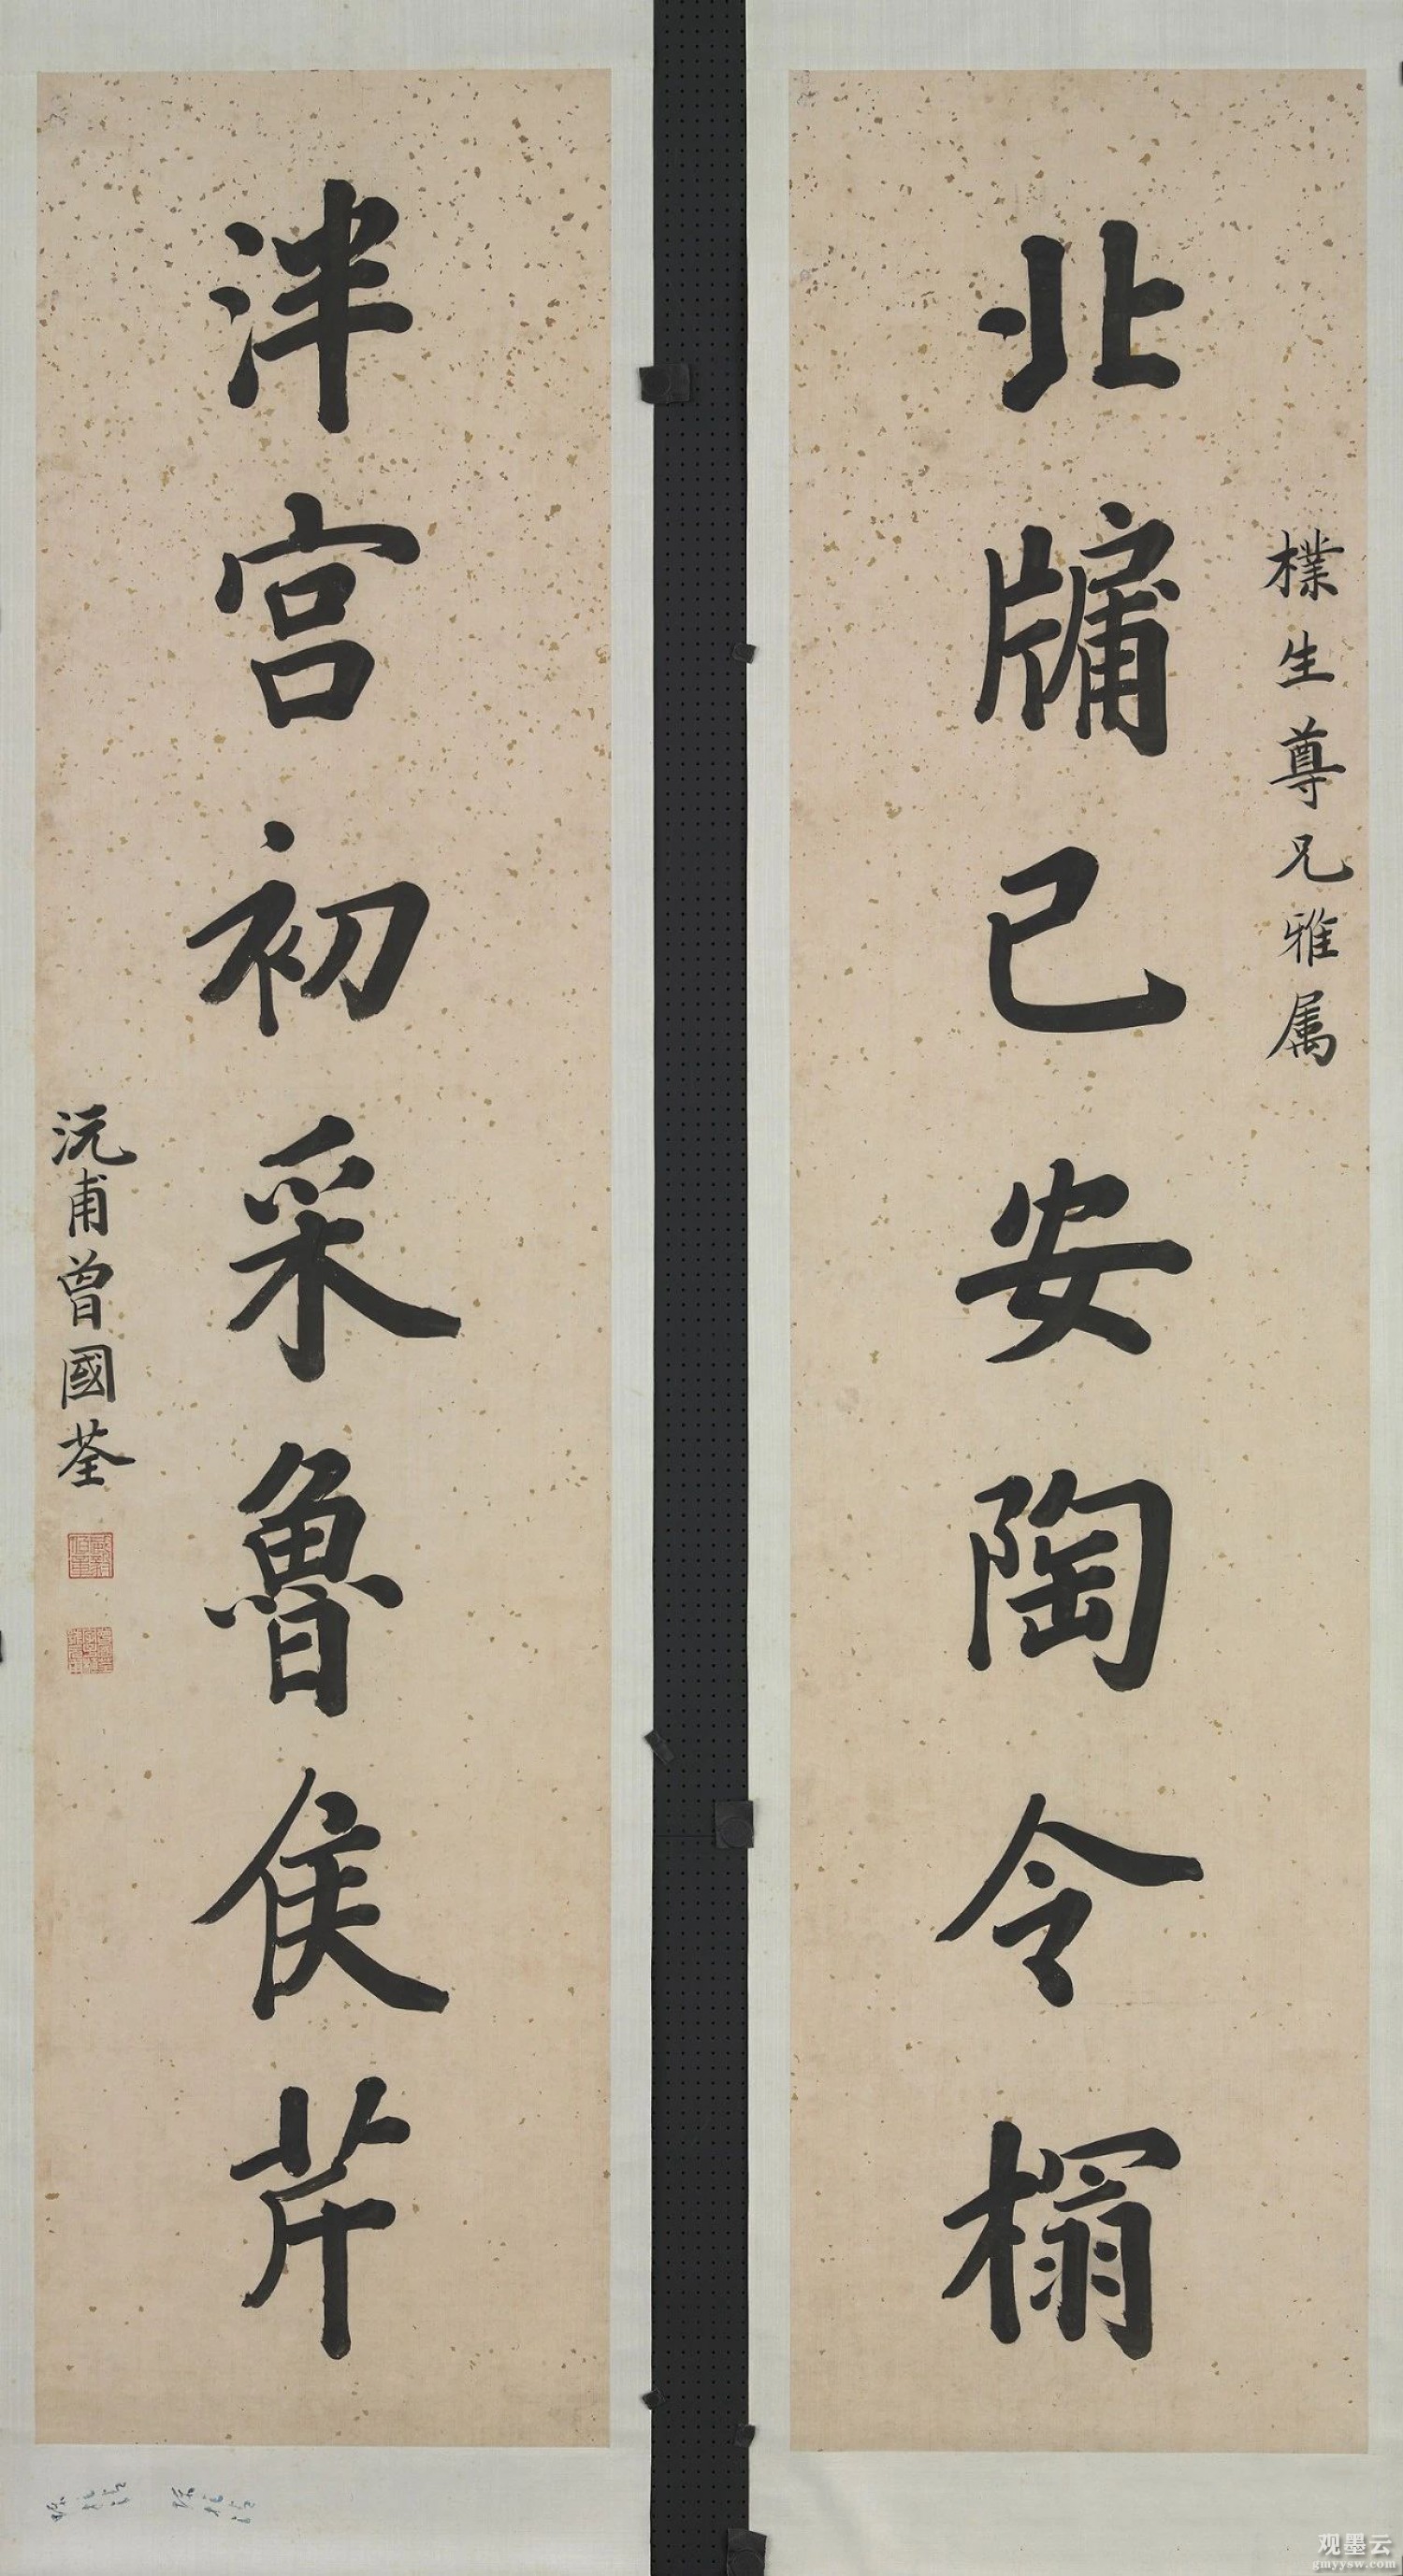 樸生尊兄雅属
北牖已安陶令榻
泮宫初采魯侯芹
沅甫曾國荃
观墨云
gmyysw.com